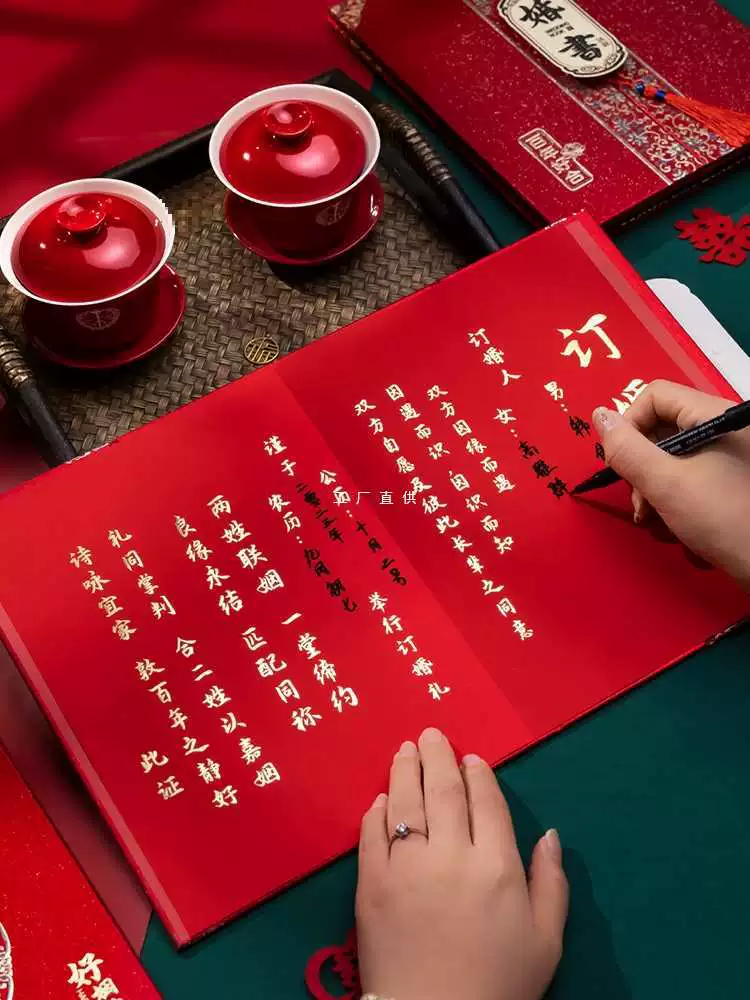 婚書
百年好合
订
男：韩
订婚人 女：高雅
双方因缘而遇
因遇而识 因识而知
双方自愿及彼此长辈之同意
谨于二零二 年
公历：十月二号
农历：九月初七
举行订婚礼
两姓联姻 一堂缔约
良缘永结 匹配同称
礼同掌判 合二姓以嘉姻
诗咏宜家 敦百年之静好
此证
工厂直供
好